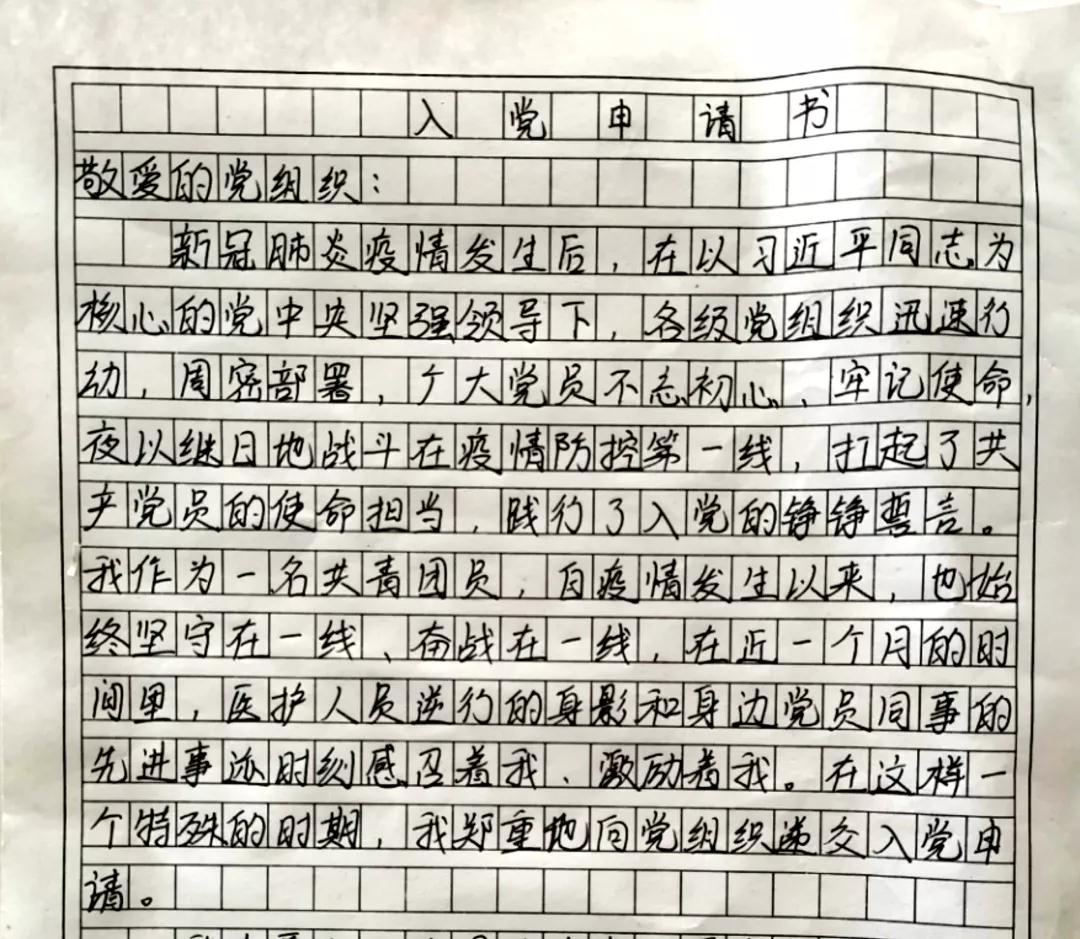 入党申请书
敬爱的党组织：
新冠肺炎疫情发生后，在以习近平同志为
核心的党中央坚强领导下，各级党组织迅速行
动，周密部署，广大党员不忘初心、牢记使命，
夜以继日地战斗在疫情防控第一线，扛起了共
产党员的使命担当，践行了入党的铮铮誓言。
我作为一名共青团员，自疫情发生以来，也始
终坚守在一线、奋战在一线，在近一个月的时
间里，医护人员逆行的身影和身边党员同事的
先进事迹时刻感召着我、激励着我。在这样一
个特殊的时期，我郑重地向党组织递交入党申
请。